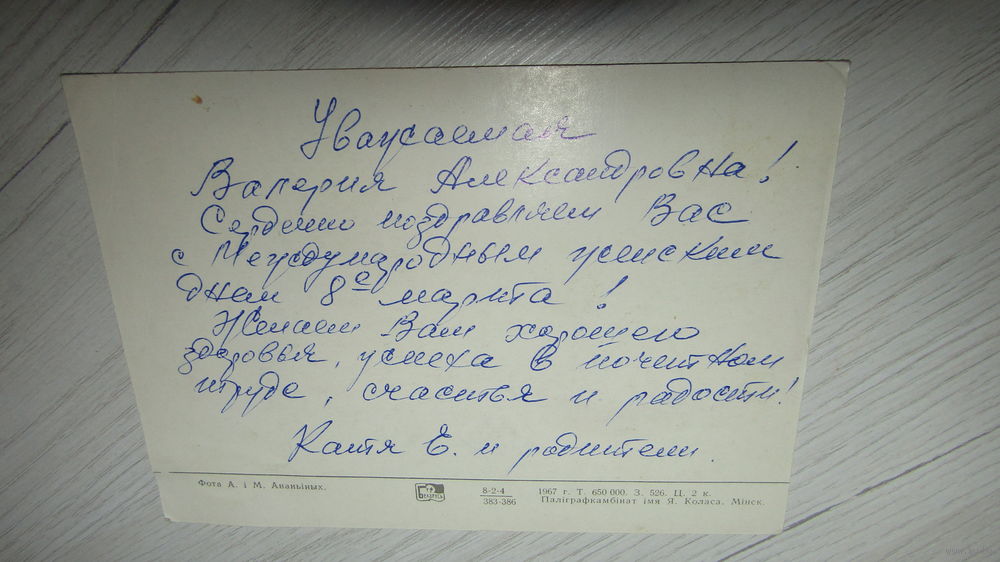 Уважаемая
Валерия Александровна!
Сердечно поздравляем Вас
с Международным женским
днем 8е марта!
Желаем Вам хорошего
здоровья, успеха в почетном
труде, счастья и радости!
Катя Е. и родители.
Фота А. і М. Ананьіных.
8-2-4
383-386
1967 г. Т. 650 000. З. 526. Ц. 2 к.
Паліграфкамбінат імя Я. Коласа. Мінск.